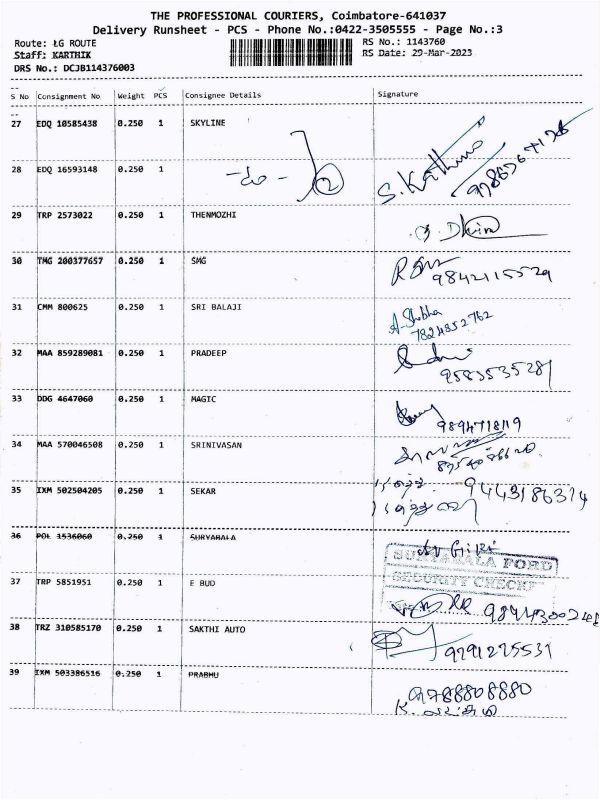 THE PROFESSIONAL COURIERS, Coimbatore-641037
Delivery Runsheet - PCS - Phone No.:0422-3505555 - Page No.:3
Route: LG ROUTE
RS No.: 1143760
Staff: KARTHIK
RS Date: 29-Mar-2023
DRS No.: DCJB114376003
S No Consignment No Weight PCS Consignee Details Signature
27 EDQ 10585438 0.250 1 SKYLINE
28 EDQ 16593148 0.250 1 S. Kathima
29 TRP 2573022 0.250 1 THENMOZHI
30 TMG 200377657 0.250 1 SMG
9842115529
31 CMM 800625 0.250 1 SRI BALAJI A-Shobha
7824352762
32 MAA 859289081 0.250 1 PRADEEP
9585535281
33 DDG 4647060 0.250 1 MAGIC
9894718119
34 MAA 570046508 0.250 1 SRINIVASAN
35 IXM 502504205 0.250 1 SEKAR 9443186374
36 POL 1536060 0.250 1 SURYABALA
SURYABALA FORD
SECURITY CHECK
37 TRP 5851951 0.250 1 E BUD
9844300248
38 TRZ 310585170 0.250 1 SAKTHI AUTO
9791275531
39 IXM 503386516 0.250 1 PRABHU
9788808880